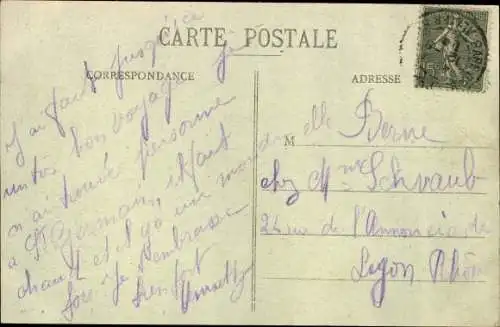 CARTE POSTALE
CORRESPONDANCE
ADRESSE
J'ai fait jusqu'ici
un très bon voyage je
n'ai trouvé personne
à St Germain, il fait
chaud et il y a un monde
fou. je t'embrasse
bien fort
Melle Berne
chez Mme Schvaub
24 rue de l'Annonciade
Lyon Rhône